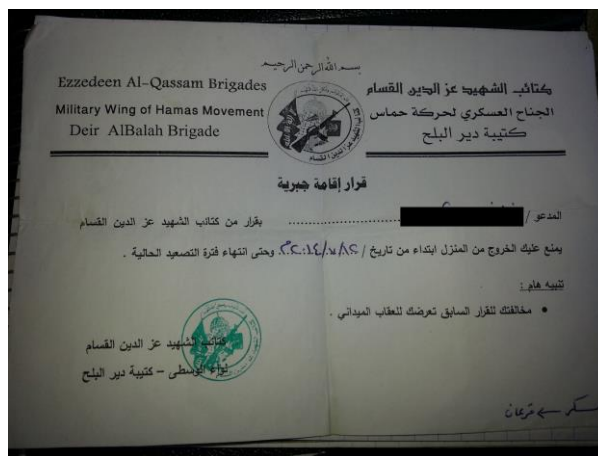 بسم الله الرحمن الرحيم
Ezzedeen Al-Qassam Brigades
Military Wing of Hamas Movement
Deir AlBalah Brigade
كتائب الشهيد عز الدين القسام
الجناح العسكري لحركة حماس
كتيبة دير البلح
قرار إقامة جبرية
المدعو / .......................... بقرار من كتائب الشهيد عز الدين القسام
يمنع عليك الخروج من المنزل ابتداء من تاريخ / ٢٨/٧/٢٠١٤م وحتى انتهاء فترة التصعيد الحالية .
تنبيه هام :
• مخالفتك للقرار السابق تعرضك للعقاب الميداني .
كتائب الشهيد عز الدين القسام
لواء الوسطى – كتيبة دير البلح